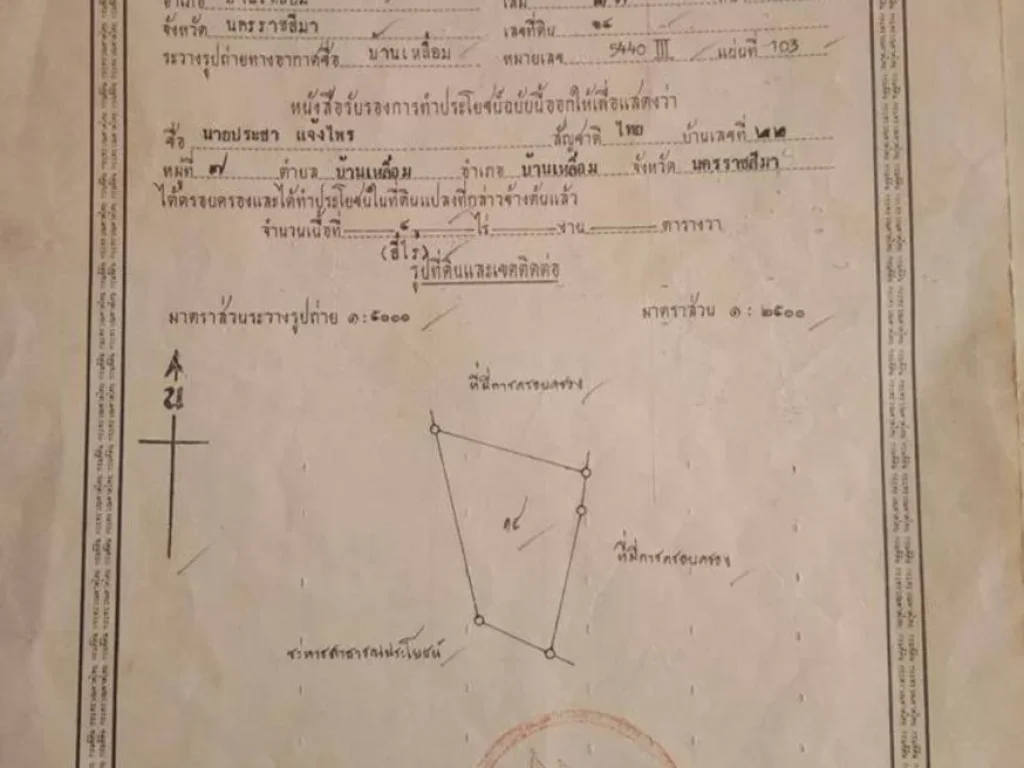 อำเภอ บ้านเหลื่อม เล่ม
จังหวัด นครราชสีมา เลขที่ดิน ๑๔
ระวางรูปถ่ายทางอากาศชื่อ บ้านเหลื่อม หมายเลข 5440 III แผ่นที่ 103
หนังสือรับรองการทำประโยชน์ฉบับนี้ออกให้เพื่อแสดงว่า
ชื่อ นายประชา แจ้งไพร สัญชาติ ไทย บ้านเลขที่ ๒๒
หมู่ที่ ๗ ตำบล บ้านเหลื่อม อำเภอ บ้านเหลื่อม จังหวัด นครราชสีมา
ได้ครอบครองและได้ทำประโยชน์ในที่ดินแปลงที่กล่าวข้างต้นแล้ว
จำนวนเนื้อที่ ๔ ไร่ งาน ตารางวา
(สี่ไร่)
รูปที่ดินและเขตติดต่อ
มาตราส่วนระวางรูปถ่าย ๑:๕๐๐๐ มาตราส่วน ๑ : ๒๕๐๐
น
ที่มีการครอบครอง
๑๔
ที่มีการครอบครอง
ทางสาธารณประโยชน์